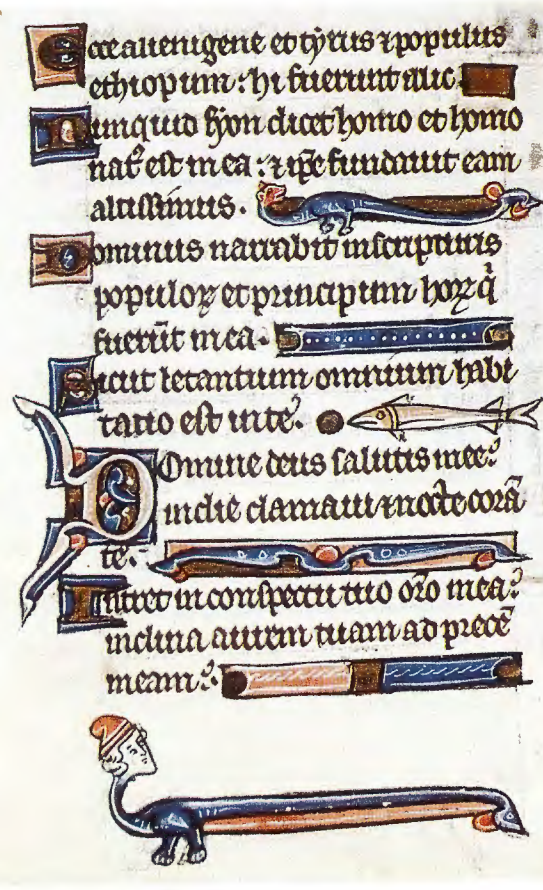 Ecce alienigene et tyrus ⁊ populus
ethiopum : hi fuerunt illic.
Nunquid syon dicet homo et homo
nat᾽ est in ea : ⁊ ip̄e fundauit eam
altissimus .
Dominus narrabit in scripturis
populoꝝ et principum hoꝝ q̇
fuerūt in ea .
Sicut letantium omnium habi
tatio est in te .
Domine deus salutis mee :
in die clamaui ⁊ nocte corā
te .
Intret in conspectu tuo orō mea :
inclina aurem tuam ad precē
meam :